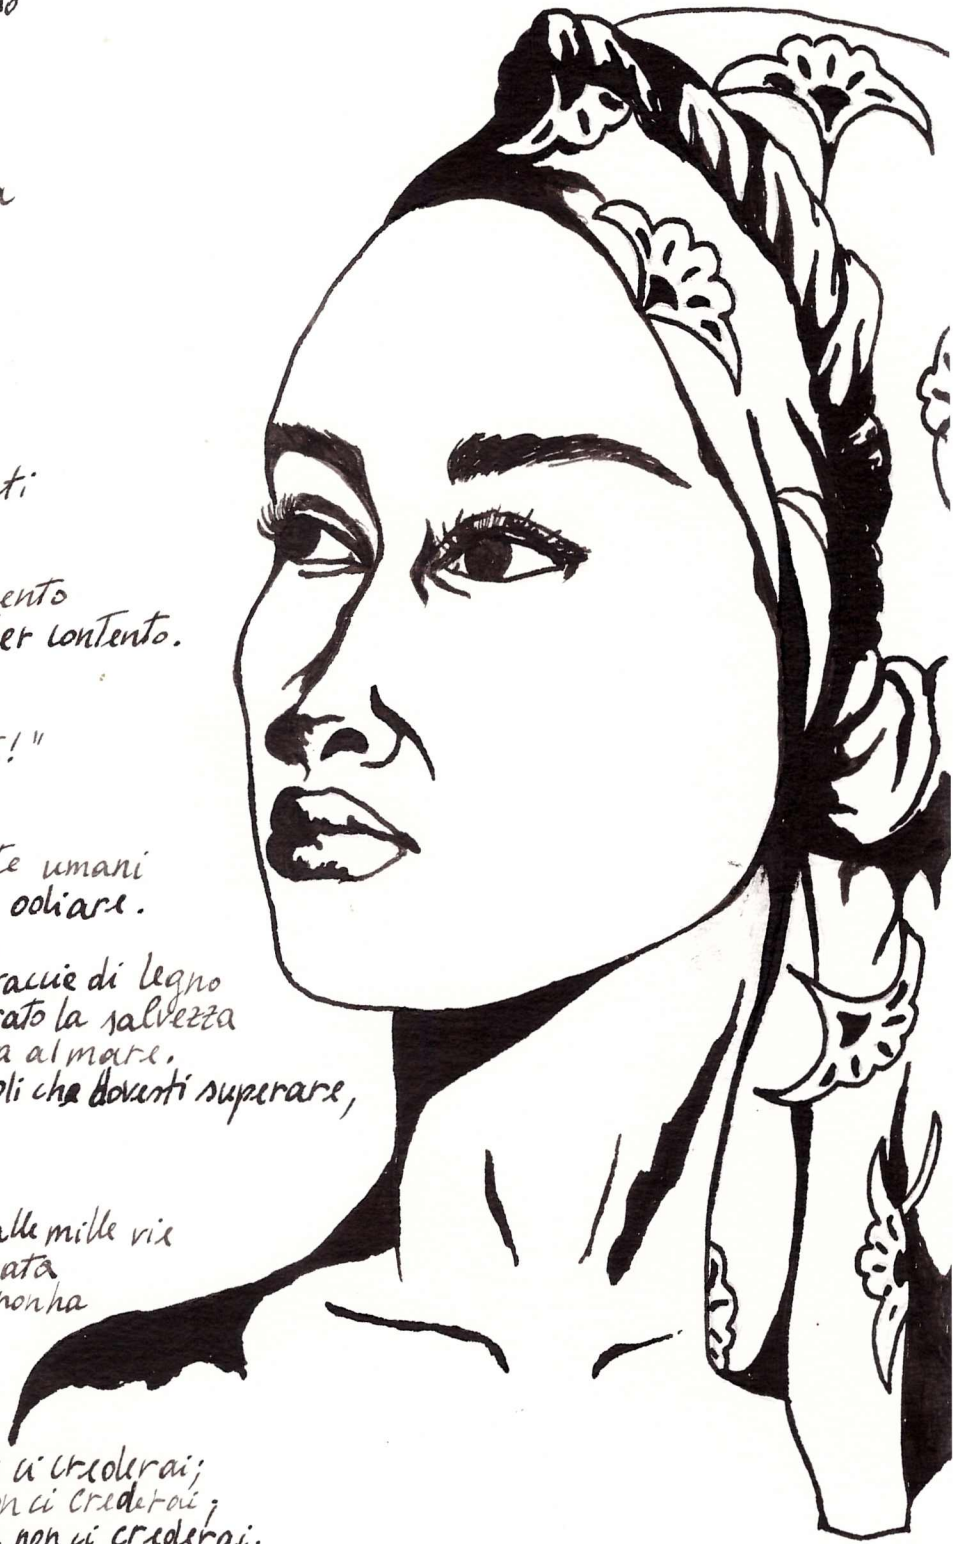 ti
ento
er contento.
!"
te umani
odiare.
raccie di legno
rato la salvezza
a al mare.
oli che dovesti superare,
alle mille vie
ata
non ha
ci crederai;
n ci crederai;
non ci crederai.